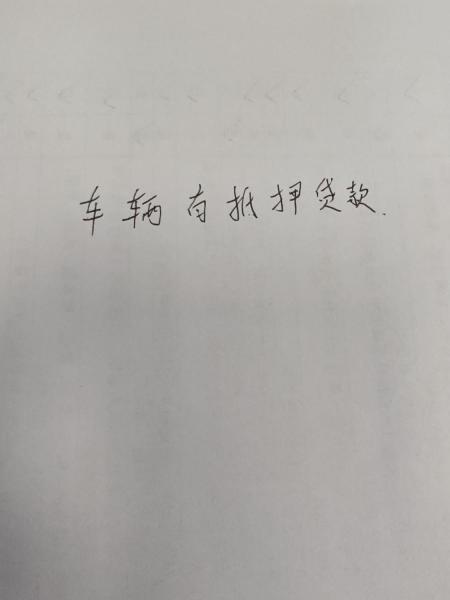 车辆有抵押贷款.